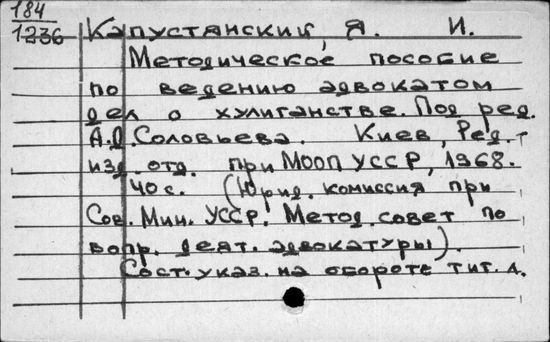 184
1236
Капустянский, Я. И.
Методическое пособие
по ведению адвокатом
дел о хулиганстве. Под ред.
А.Д. Соловьева. Киев, Ред.-
изд. отд. при МООП УССР, 1968.
40 с. (Юрид. комиссия при
Сов. Мин. УССР. Метод. совет по
вопр. деят. адвокатуры).
Сост. указ. на обороте тит. л.